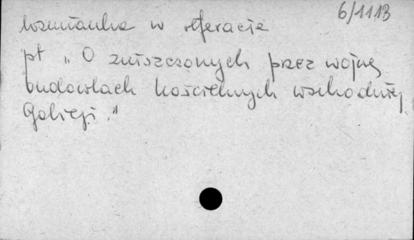 6/1113
wzmianka w referacie
pt „O zniszczonych przez wojnę
budowlach kościelnych wschodniej
Galicji."